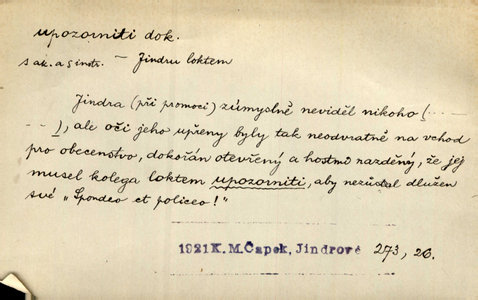 upozorniti dok.
s ak. a s instr. — Jindru loktem
Jindra (při promoci) zúmyslně neviděl nikoho (- - -
- -), ale oči jeho upřeny byly tak neodvratně na vchod
pro obecenstvo, dokořán otevřený a hostmi nazděný, že jej
musel kolega loktem upozorniti, aby nezůstal dlužen
své „Spondeo et policeo!"
1921 K. M. Čapek, Jindrové 273, 26.